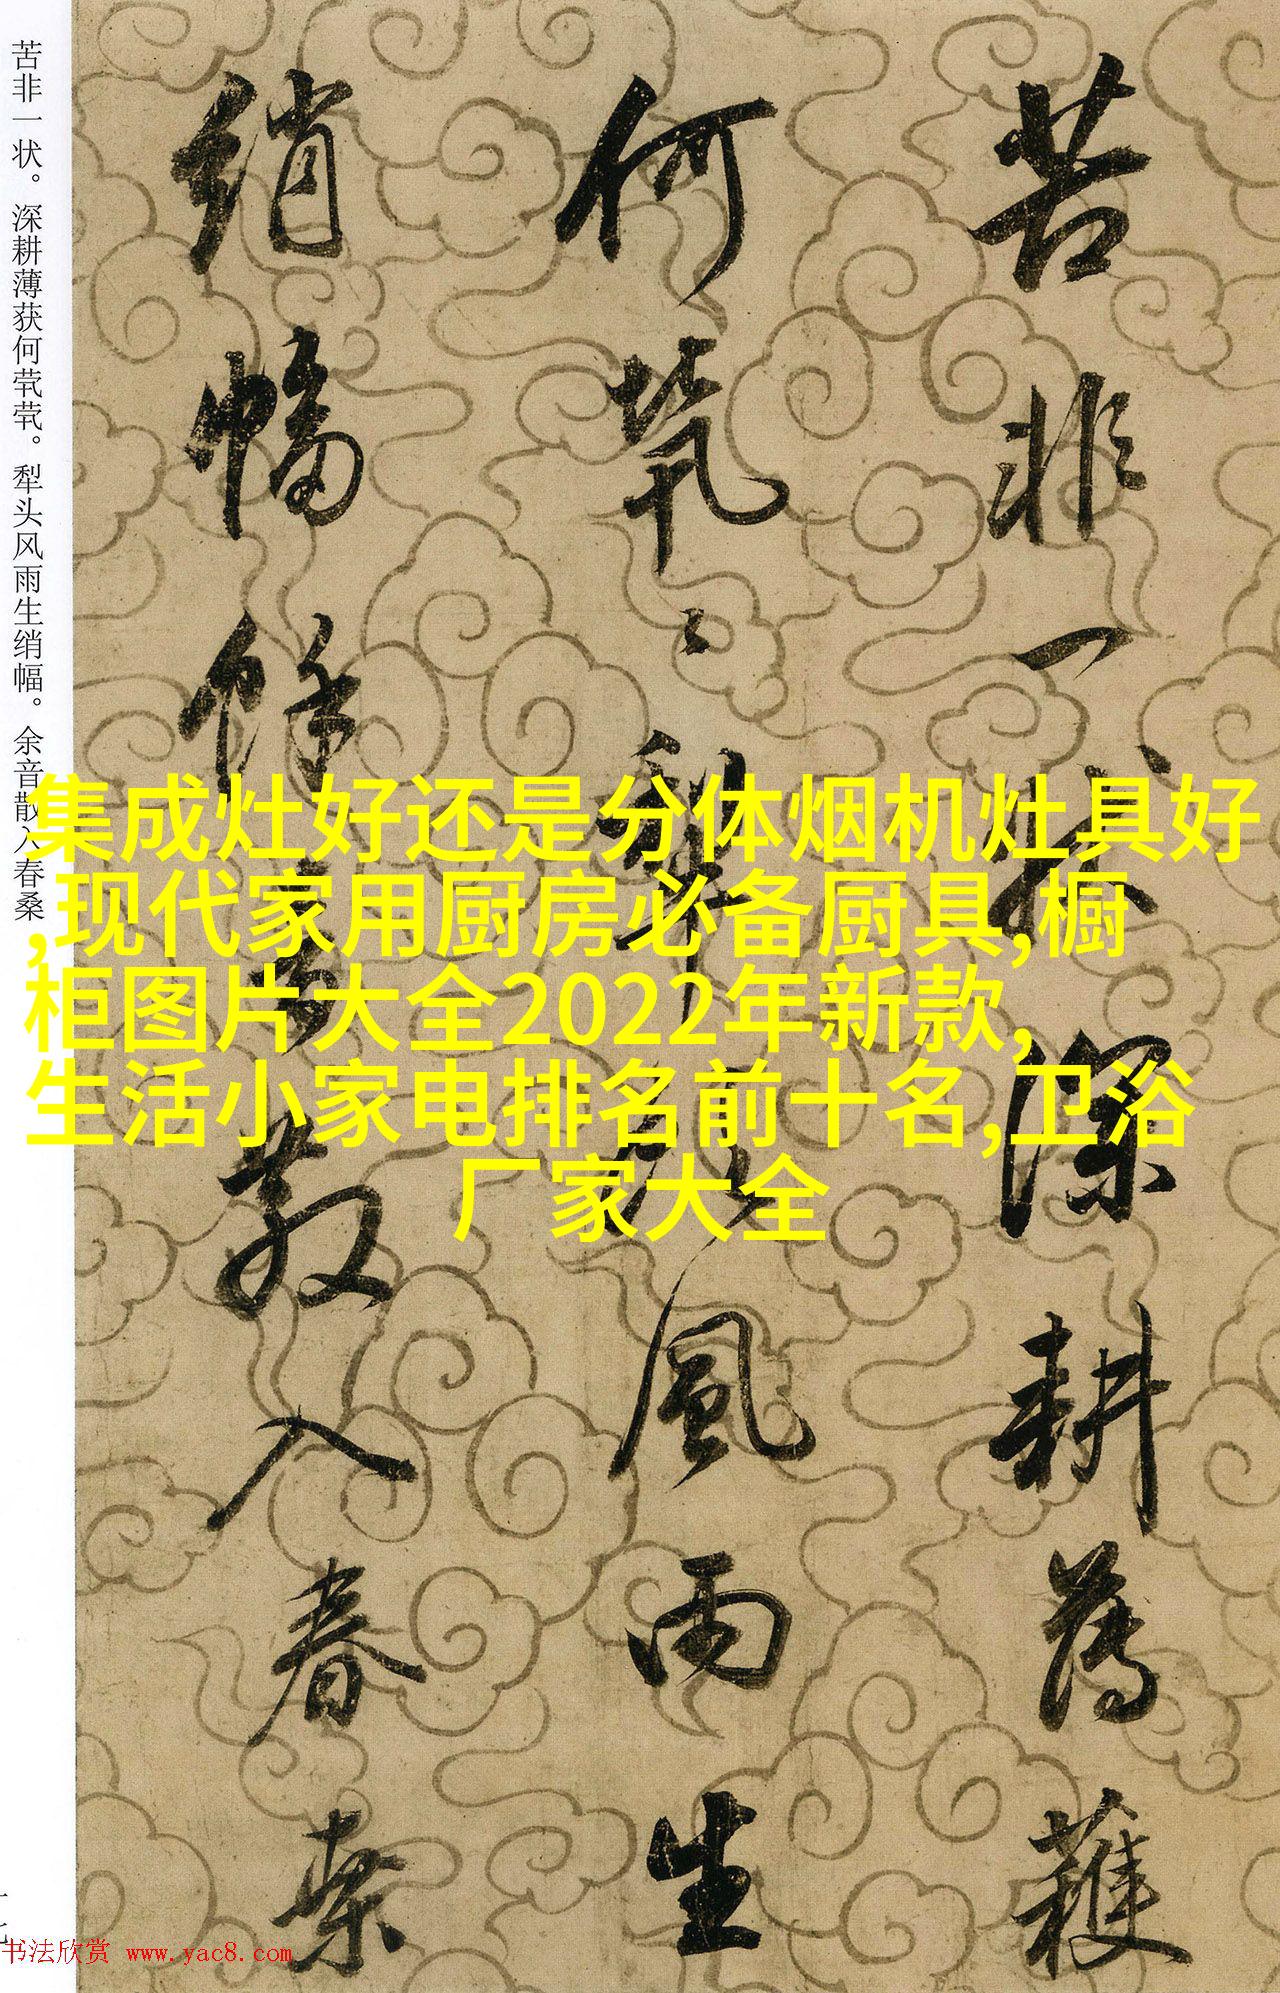 苦非一狀深耕薄穫
何煢〻犁頭風雨生
綃幅餘音散入春桑
苦非一状。深耕薄获何茕茕。犁头风雨生绡幅。余音散入春桑
集成灶好还是分体烟机灶具好
,现代家用厨房必备厨具,橱
柜图片大全2022年新款,
生活小家电排名前十名,卫浴
厂家大全
书法欣赏 www.yac8.com